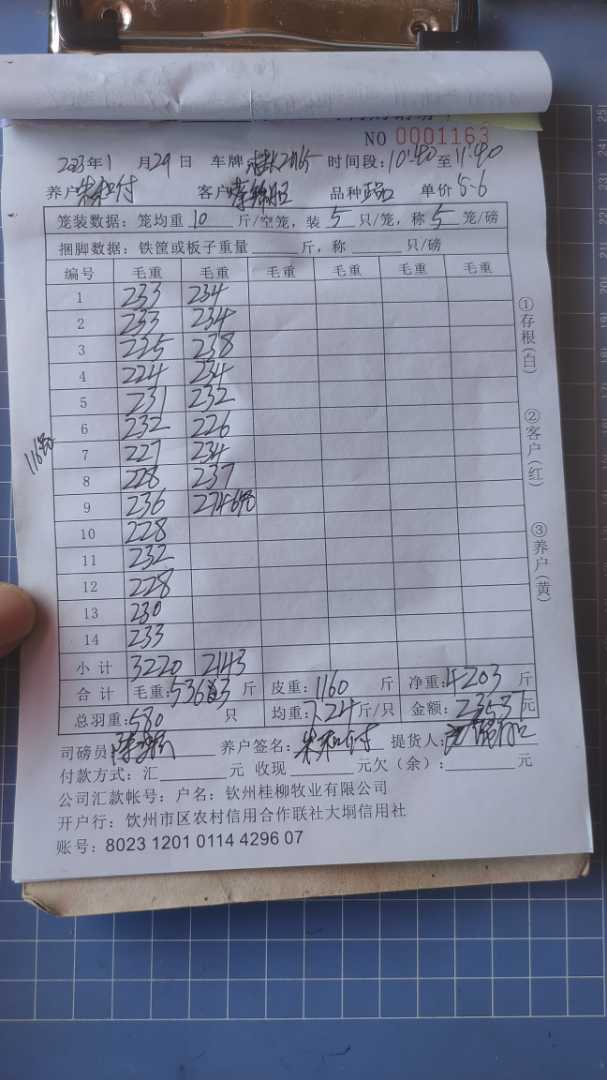 NO 0001163
2023年1月29日 车牌 时间段:10:40至11:40
养户 朱和付 客户 品种 单价 5.6
笼装数据:笼均重 10 斤/空笼,装 5 只/笼,称 5 笼/磅
捆脚数据:铁筐或板子重量 斤,称 只/磅
编号 毛重 毛重 毛重 毛重 毛重 毛重
1 233 234
2 233 234
3 225 238
4 224 234
5 231 232
6 232 226
7 227 234
8 228 237
9 236 274 6笼
10 228
11 232
12 228
13 230
14 233
小计 3220 2143
合计 毛重:5363斤 皮重:1160斤 净重:4203斤
总羽重:580只 均重:7.24斤/只 金额:23537元
司磅员: 养户签名:朱和付 提货人:
付款方式:汇 元 收现 元欠(余): 元
公司汇款帐号:户名:钦州桂柳牧业有限公司
开户行:钦州市区农村信用合作联社大垌信用社
账号:8023 1201 0114 4296 07
116笼
①存根(白)
②客户(红)
③养户(黄)